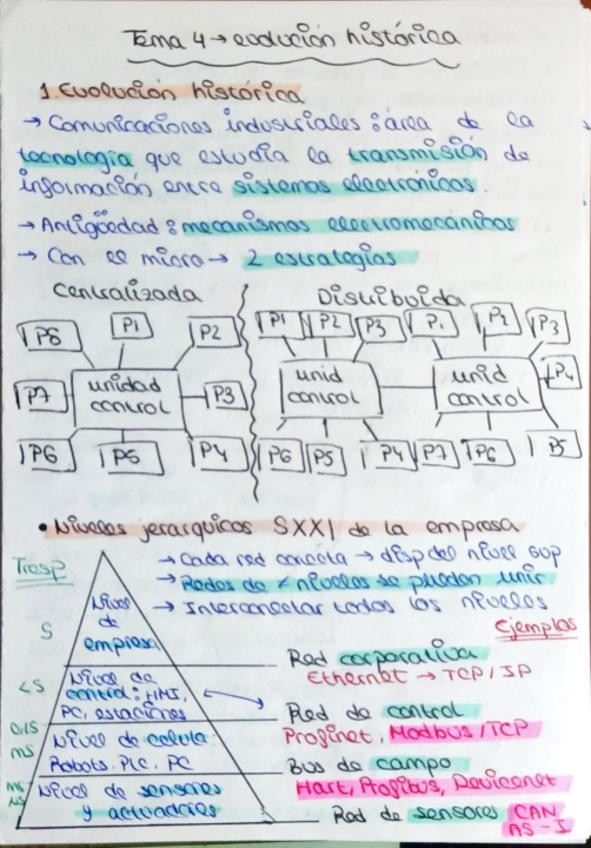 Tema 4 → evolución histórica
1. Evolución histórica
→ Comunicaciones industriales : área de la
tecnología que estudia la transmisión de
información entre sistemas electrónicos.
→ Antigüedad : mecanismos electromecánicos
→ Con el micro → 2 estrategias
Centralizada
Distribuida
P8 P1 P2
P7 unidad control P3
P6 P5 P4
P1 P2 P3
unid control
P6 P5 P4
P1 P2 P3
unid control P4
P7 P6 P5
• Niveles jerarquicos SXXI de la empresa
→ Cada red conecta → disp del nivel sup
→ Redes de ≠ niveles se pueden unir
→ Interconectar todos los niveles
Trasp
Ejemplos
S
Nivel
de
empresa
Red corporativa
Ethernet → TCP/IP
<S
Nivel de
control : HMI,
PC, estaciones
Red de control
Profinet, Modbus/TCP
0,1S
ms
Nivel de celula
Robots, PLC, PC
Bus de campo
Hart, Profibus, Devicenet
ms
Nivel de sensores
y actuadores
Red de sensores CAN
AS-I